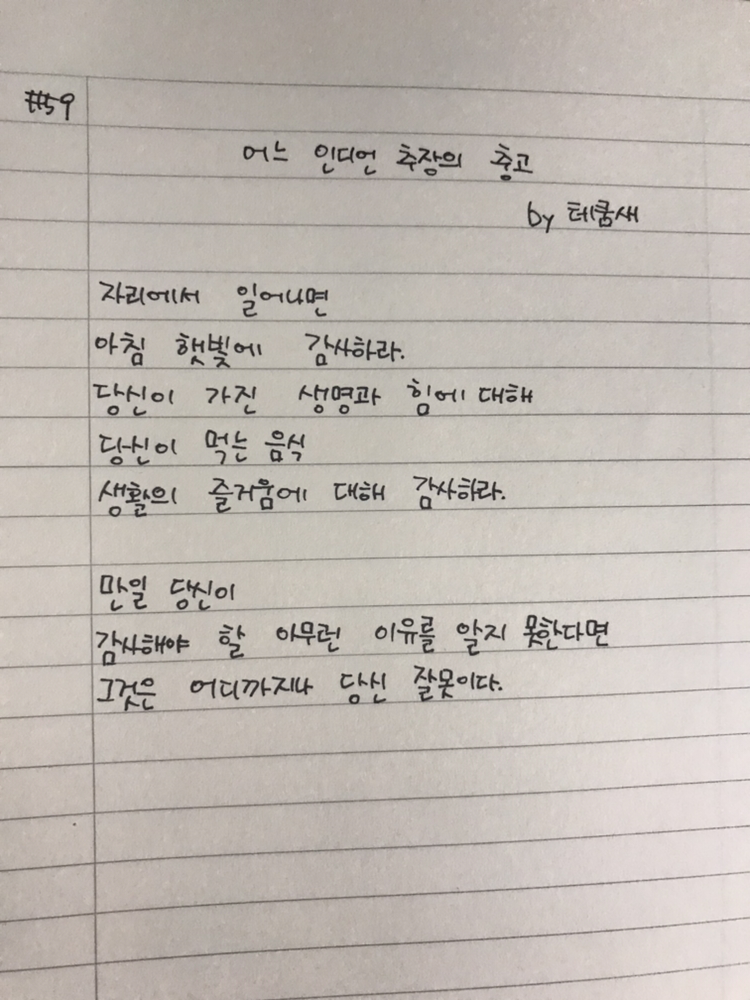 #59
어느 인디언 추장의 충고
by 테쿰새
자리에서 일어나면
아침 햇빛에 감사하라.
당신이 가진 생명과 힘에 대해
당신이 먹는 음식
생활의 즐거움에 대해 감사하라.
만일 당신이
감사해야 할 아무런 이유를 알지 못한다면
그것은 어디까지나 당신 잘못이다.